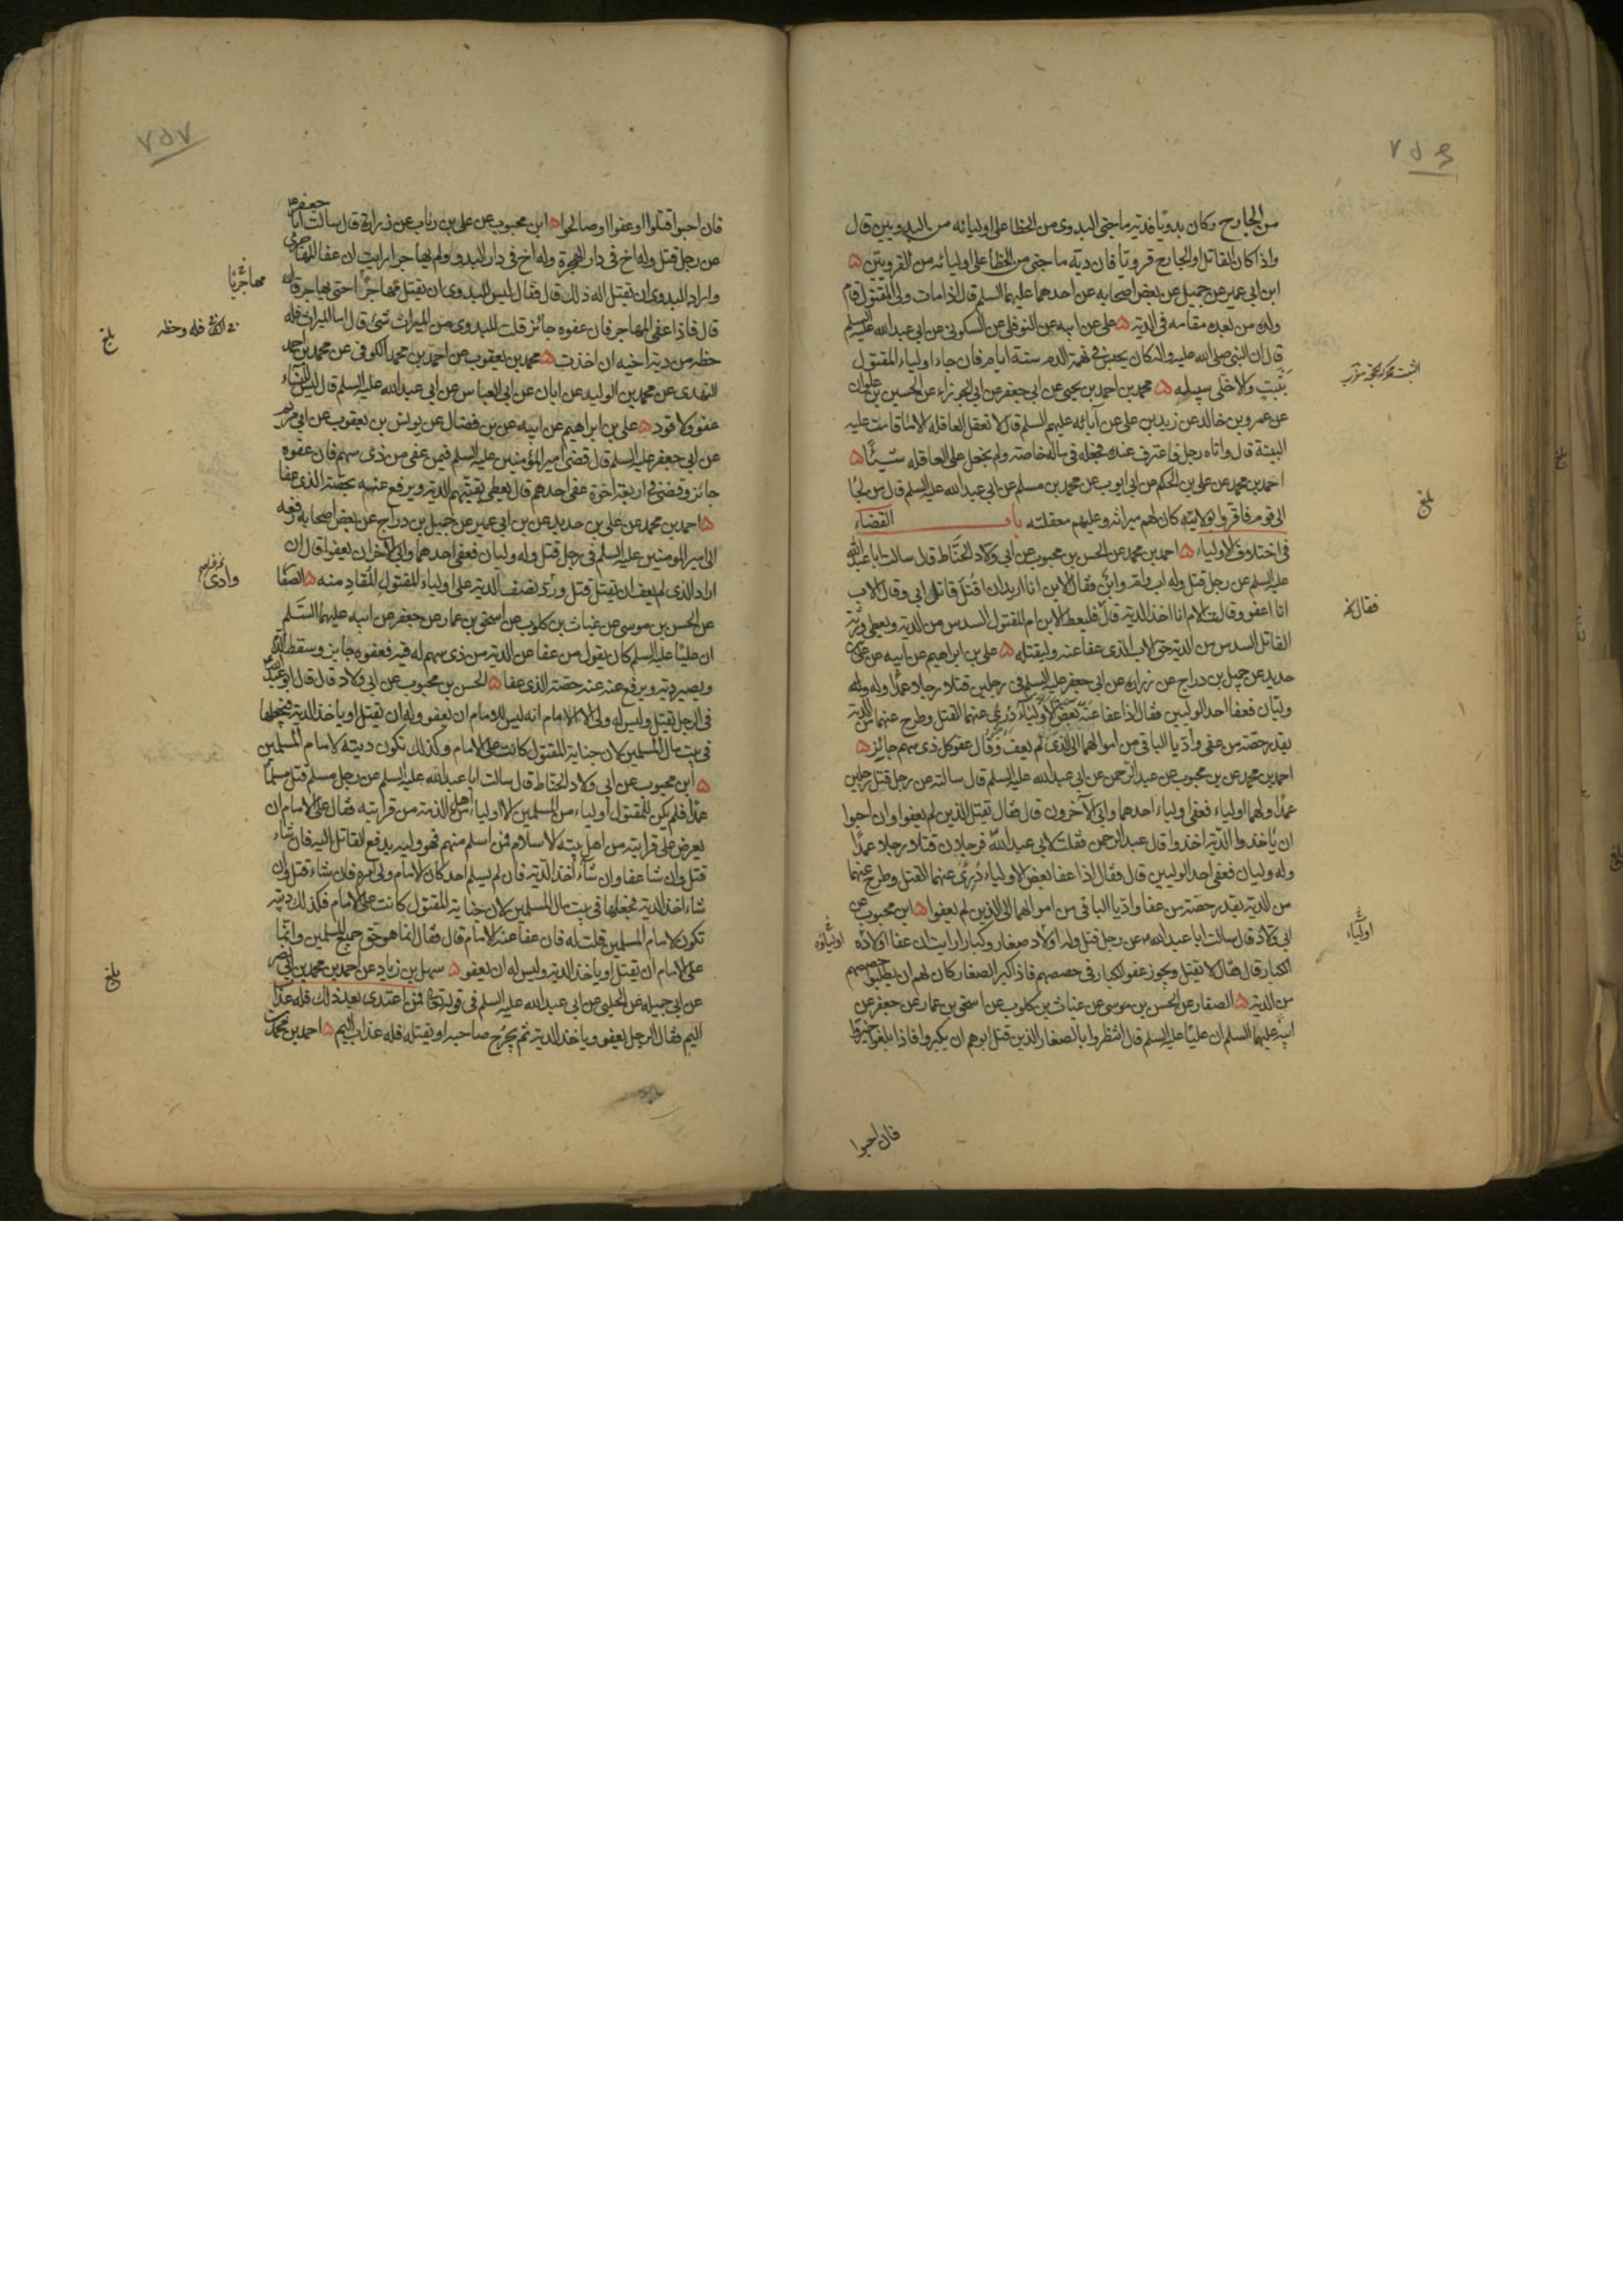 ٧٥٦
من الجارح وكان بدويا فديته ما جنى البدوى من الخطا على اوليائه من البدويين قال
واذا كان القاتل او الجارح قرويا فان دية ما جنى من الخطا على اوليائه من القرويين ۵
ابن ابى عمير عن جميل عن بعض اصحابه عن احدهما عليهما السلم قال اذا مات ولى المقتول قام
ولده من بعده مقامه فى الدية ۵ على عن ابيه عن النوفلى عن السكونى عن ابى عبد الله عليه السلم
قال ان النبى صلى الله عليه واله كان يحبس فى تهمة الدم ستة ايام فان جاء اولياء المقتول
بثبت والا خلى سبيله ۵ محمد بن احمد بن يحيى عن ابى جعفر عن ابى الجوزاء عن الحسين بن علوان
عن عمرو بن خالد عن زيد بن على عن آبائه عليهم السلم قال لا تعقل العاقلة الا ما قامت عليه
البينة قال واتاه رجل فاعترف عنده فجعله فى ماله خاصة ولم يجعل على العاقله شيئا ۵
احمد بن محمد عن على بن الحكم عن ابى ايوب عن محمد بن مسلم عن ابى عبد الله عليه السلم قال من لجا
الى قوم فاقروا بولايته كان لهم ميراثه وعليهم معقلته باب القضاء
فى اختلاف الاولياء ۵ احمد بن محمد عن الحسن بن محبوب عن ابى ولاد الحناط قال سالت ابا عبد الله
عليه السلم عن رجل قتل وله اب وام وابن فقال الابن انا اريد ان اقتل قاتل ابى وقال الاب
انا اعفو وقالت الام انا اخذ الدية قال فليعط الابن ام المقتول السدس من الدية ويعطى ورثة
القاتل السدس من الدية حق الاب الذى عفا عنه وليقتله ۵ على بن ابراهيم عن ابيه عن على بن
حديد عن جميل بن دراج عن زرارة عن ابى جعفر عليه السلم فى رجلين قتلا رجلا عمدا وله
وليان فعفا احد الوليين فقال اذا عفا عنه بعض الاولياء درئ عنهما القتل وطرح عنهما من الدية
بقدر حصة من عفى واديا الباقى من اموالهما الى الذى لم يعف وقال عفو كل ذى سهم جائز ۵
احمد بن محمد عن بن محبوب عن عبد الرحمن عن ابى عبد الله عليه السلم قال سالته عن رجل قتل رجلين
عمدا ولهما اولياء فعفى اولياء احدهما وابى الآخرون قال فقال تقتل الذين لم يعفوا وان احبوا
ان ياخذوا الدية اخذوا قال عبد الرحمن فقلت لابى عبد الله فرجلان قتلا رجلا عمدا
وله وليان فعفى احد الوليين قال فقال اذا عفا بعض الاولياء درئ عنهما القتل وطرح عنهما
من الدية بقدر حصة من عفا واديا الباقى من اموالهما الى الذين لم يعفوا ۵ ابن محبوب عن
ابى ولاد قال سالت ابا عبد الله عن رجل قتل وله اولاد صغار وكبار ارايت ان عفا اولاده
الكبار قال فقال لا يقتل ويجوز عفو الكبار فى حصصهم فاذا كبر الصغار كان لهم ان يطلبوا حصصهم
من الدية ۵ الصفار عن الحسن بن موسى عن غياث بن كلوب عن اسحق بن عمار عن جعفر عن
ابيه عليهما السلم ان عليا عليه السلم قال انتظروا بالصغار الذين قتل ابوهم ان يكبروا فاذا بلغوا خيروا
فان احبوا
بلغ
فقال خ
اولياء
اولياؤه
٧٥٧
فان احبوا قتلوا او عفوا او صالحوا ۵ ابن محبوب عن على بن رئاب عن زرارة قال سالت ابا جعفر
عن رجل قتل وله اخ فى دار الهجرة وله اخ فى دار البدو ولم يهاجر ارايت ان عفا المهاجرى
واراد البدوى ان يقتل اله ذلك قال فقال ليس للبدوى ان يقتل مهاجرا حتى يهاجر قال
قال فاذا عفى المهاجر فان عفوه جائز قلت للبدوى من الميراث شئ قال اما الميراث فله
حظه من دية اخيه ان اخذت ۵ محمد بن يعقوب عن احمد بن محمد الكوفى عن محمد بن احمد
النهدى عن محمد بن الوليد عن ابان عن ابى العباس عن ابى عبد الله عليه السلم قال ليس للنساء
عفو ولا قود ۵ على بن ابراهيم عن ابيه عن بن فضال عن يونس بن يعقوب عن ابى مريم
عن ابى جعفر عليه السلم قال قضى امير المؤمنين عليه السلم فيمن عفى من ذى سهم فان عفوه
جائز وقضى فى اربعة اخوة عفى احدهم قال يعطى بقيتهم الدية ويرفع عنه بحصة الذى عفا
۵ احمد بن محمد عن على بن حديد عن بن ابى عمير عن جميل بن دراج عن بعض اصحابه رفعه
الى امير المومنين عليه السلم فى رجل قتل وله وليان فعفى احدهما وابى الآخر ان يعفو قال ان
اراد الذى لم يعف ان يقتل قتل ورد نصف الدية على اولياء المقتول المقاد منه ۵ الصفار
عن الحسن بن موسى عن غياث بن كلوب عن اسحق بن عمار عن جعفر عن ابيه عليهما السلم
ان عليا عليه السلم كان يقول من عفا عن الدية من ذى سهم له فيه فعفوه جايز وسقط الدم
ويصير دية ويرفع عنه حصة الذى عفا ۵ الحسن بن محبوب عن ابى ولاد قال قال ابو عبد الله
فى الرجل يقتل وليس له ولى الا الامام انه ليس للامام ان يعفو وله ان يقتل او ياخذ الدية فيجعلها
فى بيت مال المسلمين لان جناية المقتول كانت على الامام وكذلك تكون ديته لامام المسلمين
۵ ابن محبوب عن ابى ولاد الحناط قال سالت ابا عبد الله عليه السلم عن رجل مسلم قتل مسلما
عمدا فلم يكن للمقتول اولياء من المسلمين الا اولياء من اهل الذمة من قرابته فقال على الامام ان
يعرض على قرابته من اهل بيته الاسلام فمن اسلم منهم فهو وليه يدفع القاتل اليه فان شاء
قتل وان شا عفا وان شاء اخذ الدية فان لم يسلم احد كان الامام ولى امره فان شاء قتل وان
شاء اخذ الدية فجعلها فى بيت مال المسلمين لان جناية المقتول كانت على الامام فكذلك ديته
تكون لامام المسلمين قلت له فان عفا عنه الامام قال فقال انما هو حق جميع المسلمين وانما
على الامام ان يقتل او ياخذ الدية وليس له ان يعفو ۵ سهل بن زياد عن احمد بن محمد بن ابى نصر
عن ابى جميله عن الحلبى عن ابى عبد الله عليه السلم فى قوله تعالى فمن اعتدى بعد ذلك فله عذاب
اليم فقال الرجل يعفو وياخذ الدية ثم يجرح صاحبه او يقتله فله عذاب اليم ۵ احمد بن محمد
مهاجريا
فله وحظه
بلغ
وادى
بلغ